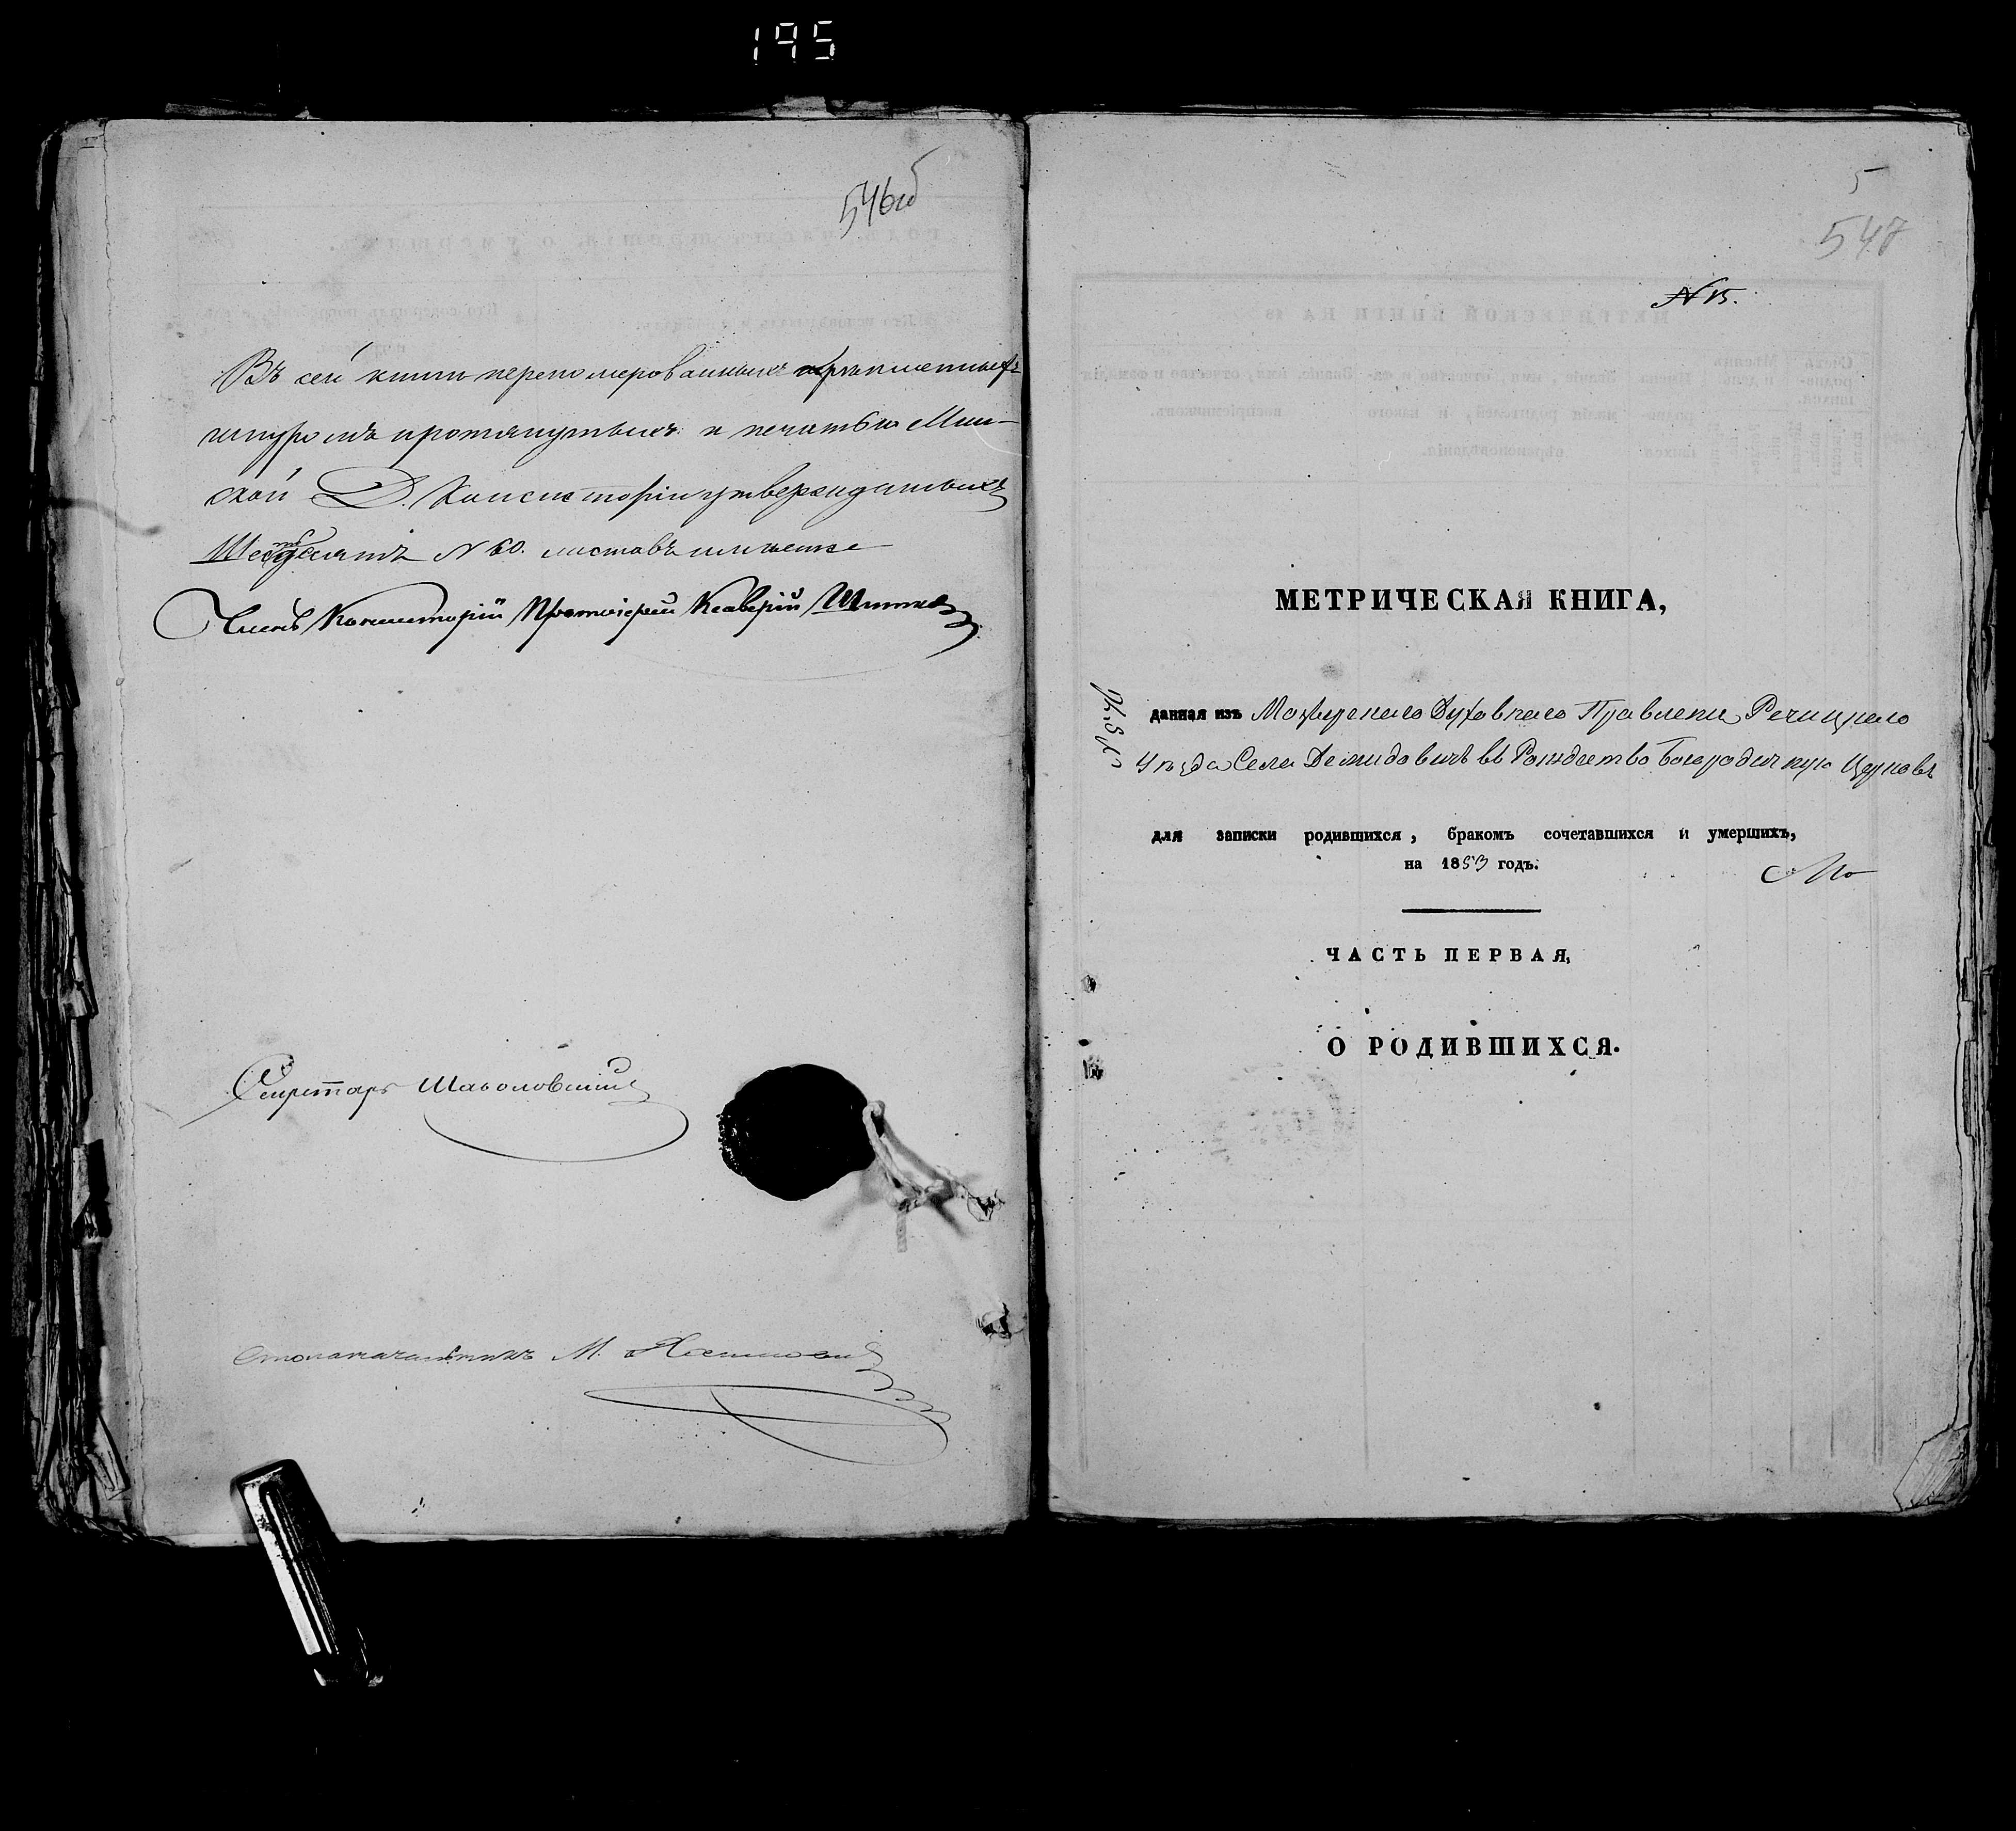 195
546об
Въ сей книги перепомерованныхъ скрѣпленныхъ
шнуромъ протянутыхъ и печатью Мин-
ской Д. Консисторіи утвержденныхъ
Шестдесятъ N 60. листовъ
Членъ Консисторіи Протоіерей Ксаверій
Секретарь
Столоначальникъ М.
5
547
N 15.
МЕТРИЧЕСКАЯ КНИГА,
данная изъ Мозырскаго Духовнаго Правленія Речицкаго
Уѣзда Села Демидовичъ въ Рождество Богородичную Церковь
для записки родившихся, бракомъ сочетавшихся и умершихъ,
на 1853 годъ.
ЧАСТЬ ПЕРВАЯ,
О РОДИВШИХСЯ.